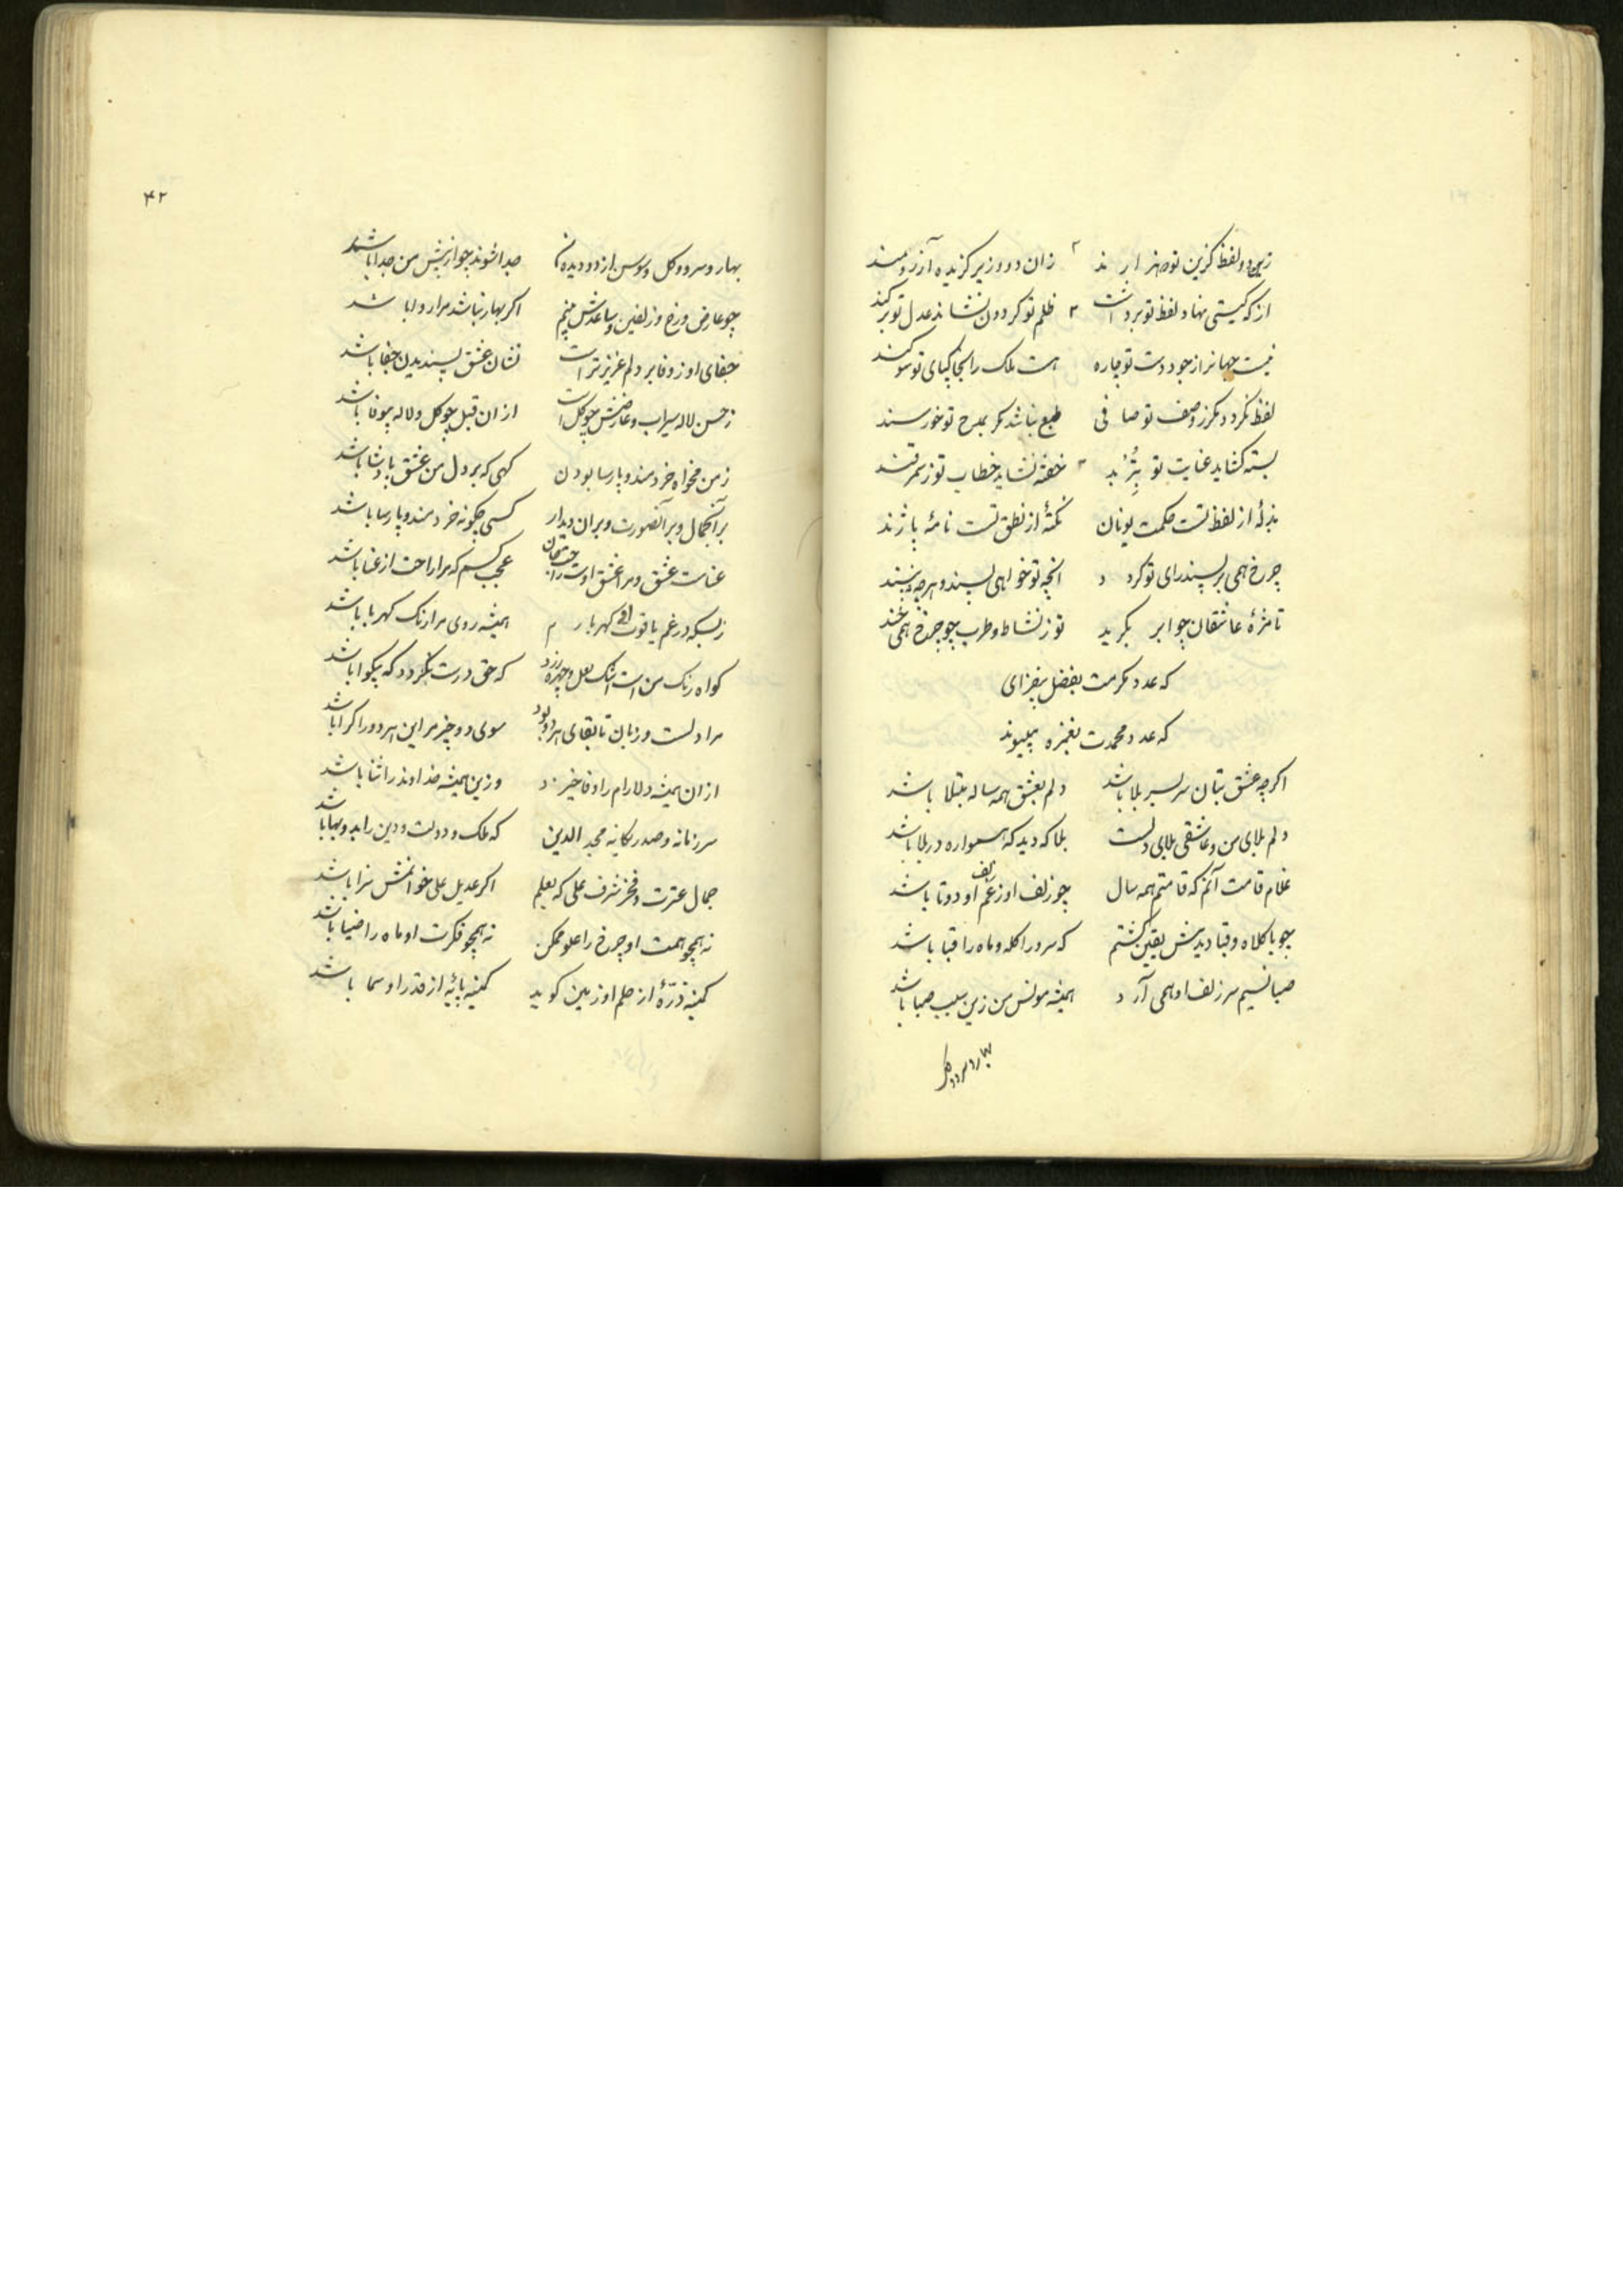 زین دو لفظ گزین تو هنر ار ند زان دو وزیر گزیده آرزومند
از که گیتی نهاد لفظ تو برداشت ظلم تو گردون نشاند عدل تو برکند
نیست جهانرا ز جود دست تو چاره هست ملک را بخاکپای تو سوگند
لفظ نگردد مگر ز وصف تو صافی طبع نباشد مگر بمدح تو خورسند
بسته گشاید عنایت تو خفته نشاید خطاب تو ز سمرقند
بذلهٔ از لفظ تست حکمت یونان نکتهٔ از نطق تست نامهٔ پاژند
چرخ همی بر پسند رای تو گردد آنچه تو خواهی پسند و هرچه
تا مژهٔ عاشقان چو ابر بگرید تو ز نشاط و طرب چو چرخ همی خند
که عدد مکرمت بفضل بیفزای
که عدد محمدت بغمزه بپیوند
اگرچه عشق بتان سر بسر بلا باشد دلم بعشق همه ساله مبتلا باشد
دلم بلای من و عاشقی بلای دلست بلا که دید که همواره در بلا باشد
غلام قامت آنم که قامتم همه سال چو زلف او ز غم زلف او دوتا باشد
چو با کلاه و قبا دیدمش یقین گشتم که سرو را کله و ماه را قبا باشد
صبا نسیم سر زلف او همی آرد همیشه مونس من زین سبب صبا باشد
بهار و سرو و گل
۴۲
بهار و سرو و گل و سوسن از دو دیدهٔ من جدا شوند چو از پیش من جدا باشد
چو عارض و رخ و زلفین و ساعدش بینم اگر بهار نباشد مرا روا باشد
جفای او ز وفا بر دلم عزیزتر است نشان عشق پسندیدن جفا باشد
ز حسن لاله سیراب و عارضش چو گل است از آن قبل چو گل و لاله بیوفا باشد
ز من مخواه خردمند و پارسا بودن گهی که بر دل من عشق پادشا باشد
بر آنجمال و بر آنصورت و بر آن دیدار کسی چگونه خردمند و پارسا باشد
عناست عشق و مرا عشق اوست راحت جان عجب کسم که مرا راحت از عنا باشد
ز بسکه در غم یاقوت او گهر بارم همیشه روی مرا رنگ کهربا باشد
گواه رنگ من است اشک لعل و چهره زرد که حق درست نگردد که بیگوا باشد
مرا دلست و زبان تا بقای هر دو بود سوی دو چیز مر این هر دو را گرا باشد
از آن همیشه دلارام را وفا خیزد وزین همیشه خداوند را ثنا باشد
سر زمانه و صدر یگانه مجد الدین که ملک و دولت و دین را بدو بها باشد
جمال عترت و فخر شرف علی که بعلم اگر عدیل علی خوانمش سزا باشد
نه همچو همت او چرخ را علو ممکن نه همچو فکرت او ماه را ضیا باشد
کمینه ذرّهٔ از حلم او زمین گوید کمینه پایهٔ از قدر او سما باشد